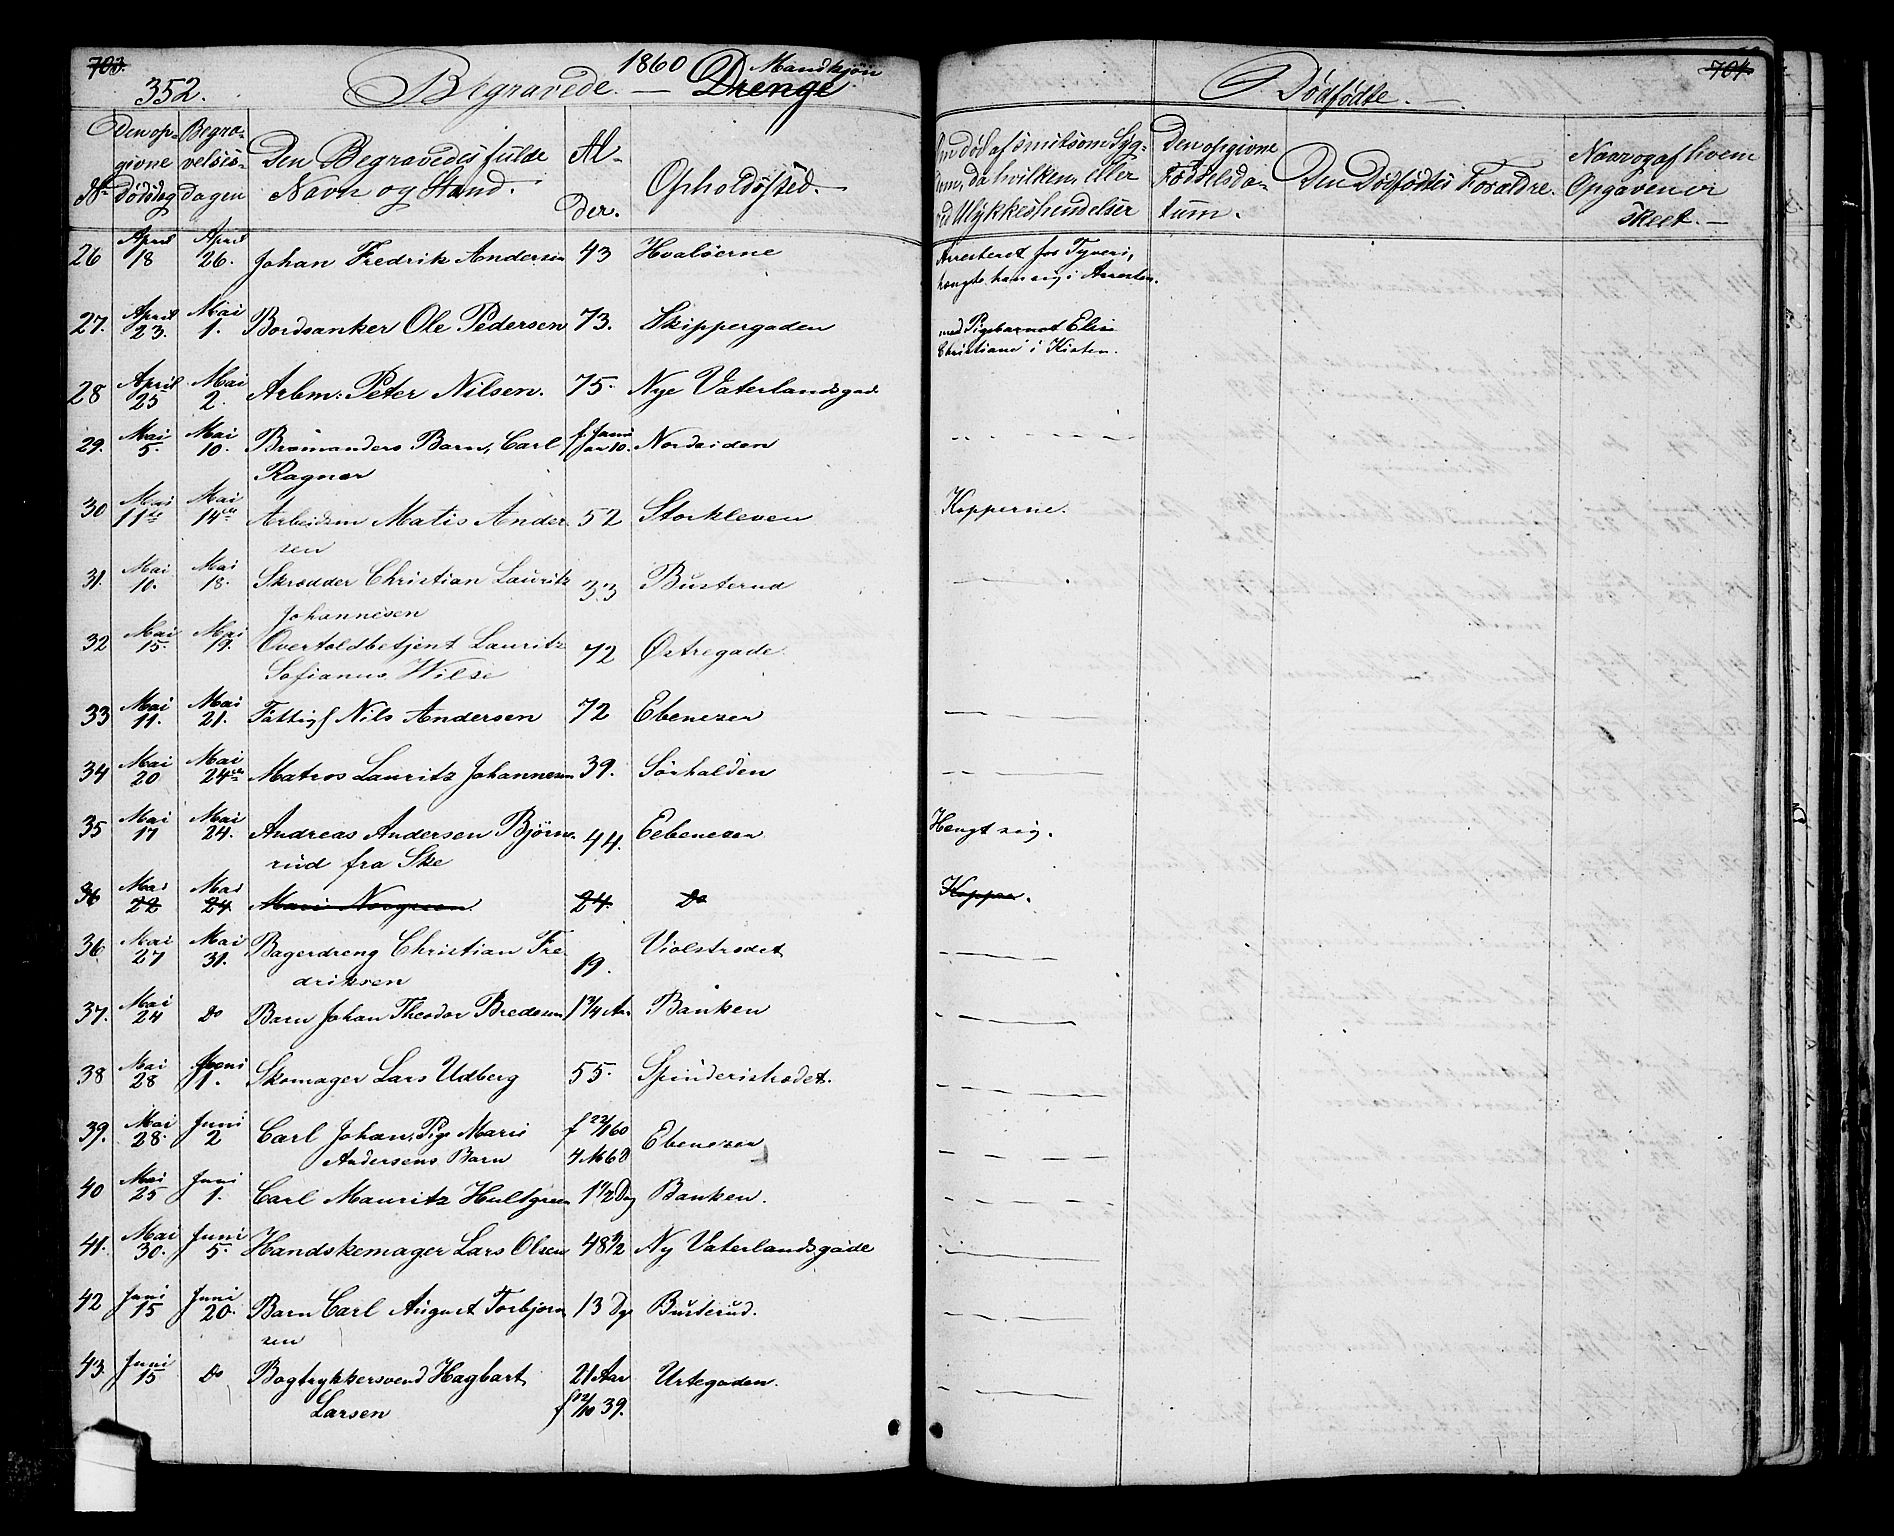 703.
352.
1860
Mandkjön
Begravede. — Drenge.
No
Den opgivne Dødsdag
Begravelsesdagen
Den Begravedes fulde Navn og Stand.
Alder.
Opholdssted.
Om død af smitsom Sygdom, da hvilken, eller ved Ulykkeshendelser
704
Dødfødte.
Den opgivne Fødselsdatum.
Den Dødfødtes Forældre.
Naar og af hvem Opgaven er skeet.
26 April 18 April 26. Johan Fredrik Andersen 43 Hvaløerne Arresteret for Tyveri,
hængte han sig i Arresten.
27. April 23. Mai 1. Bordsanker Ole Pedersen 73. Skippergaden med Pigebarnet Elise
Christiane i Kisten.
28 April 25 Mai 2. Arbm: Peter Nilsen. 75. Nye Vaterlandsgad
29. Mai 5. Mai 10. Barn, Carl 10. Nordsiden
Ragnar
30 Mai 11te Mai 14de Arbeidsm Matis Ander 52 Storkleven Kopperne.
sen
31. Mai 10. Mai 18. Skrædder Christian Lauritz 33 Busterud
Johannesen
32 Mai 15. Mai 19. Overtoldbetjent Lauritz 72 Østregade
Sofianus Wilse
33 Mai 11. Mai 21. Fattigl Nils Andersen 72 Ebenezer
34 Mai 20 Mai 24de Matros Lauritz Johannesen 39. Sörhalden
35 Mai 17 Mai 24. Andreas Andersen Björn 44. Eebenezer Hengt sig.
rud fra Ske
36 Mai 22 Mai 24. Marie Norgreen. 24. Do Kopper.
36 Mai 27 Mai 31. Bagerdreng Christian Fre 19. Violstredet
driksen
37. Mai 24 Do Barn Johan Theodor Bredesen 1 3/4 Aar Banken
38 Mai 28 Juni 1. Skomager Lars Udberg 55. Spinderistrædet.
39. Mai 28. Juni 2 Carl Johan, Pige Marie f 22/1 60 Ebenezer
Andersens Barn 4 M 6 D
40 Mai 25 Juni 1. Carl Mauritz Hultgreen 1 1/2 Dag Banken.
41. Mai 30. Juni 5. Handskemager Lars Olsen 48 1/2 Ny Vaterlandsgade
42 Juni 15 Juni 20. Barn Carl August Torbjorn 13 Dge Busterud.
sen
43. Juni 15 Do Bogtrykkersvend Hagbart 21 Aar Urtegaden.
Larsen f 12/10 39.